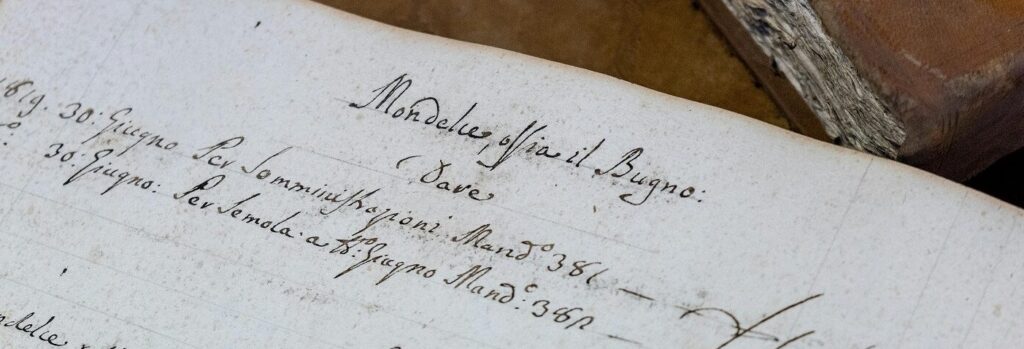 Mondelce, ossia il Bugno:
Dare
1819. 30: Giugno Per Somministrazioni Mand.º 381 —
30: Giugno: Per Semola a tt.º Giugno Mand.º 382 —